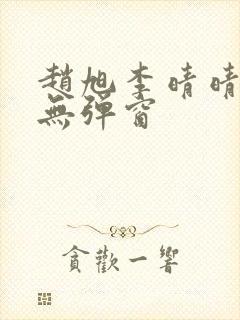 趙旭李晴晴
無彈窗
貪歡一響